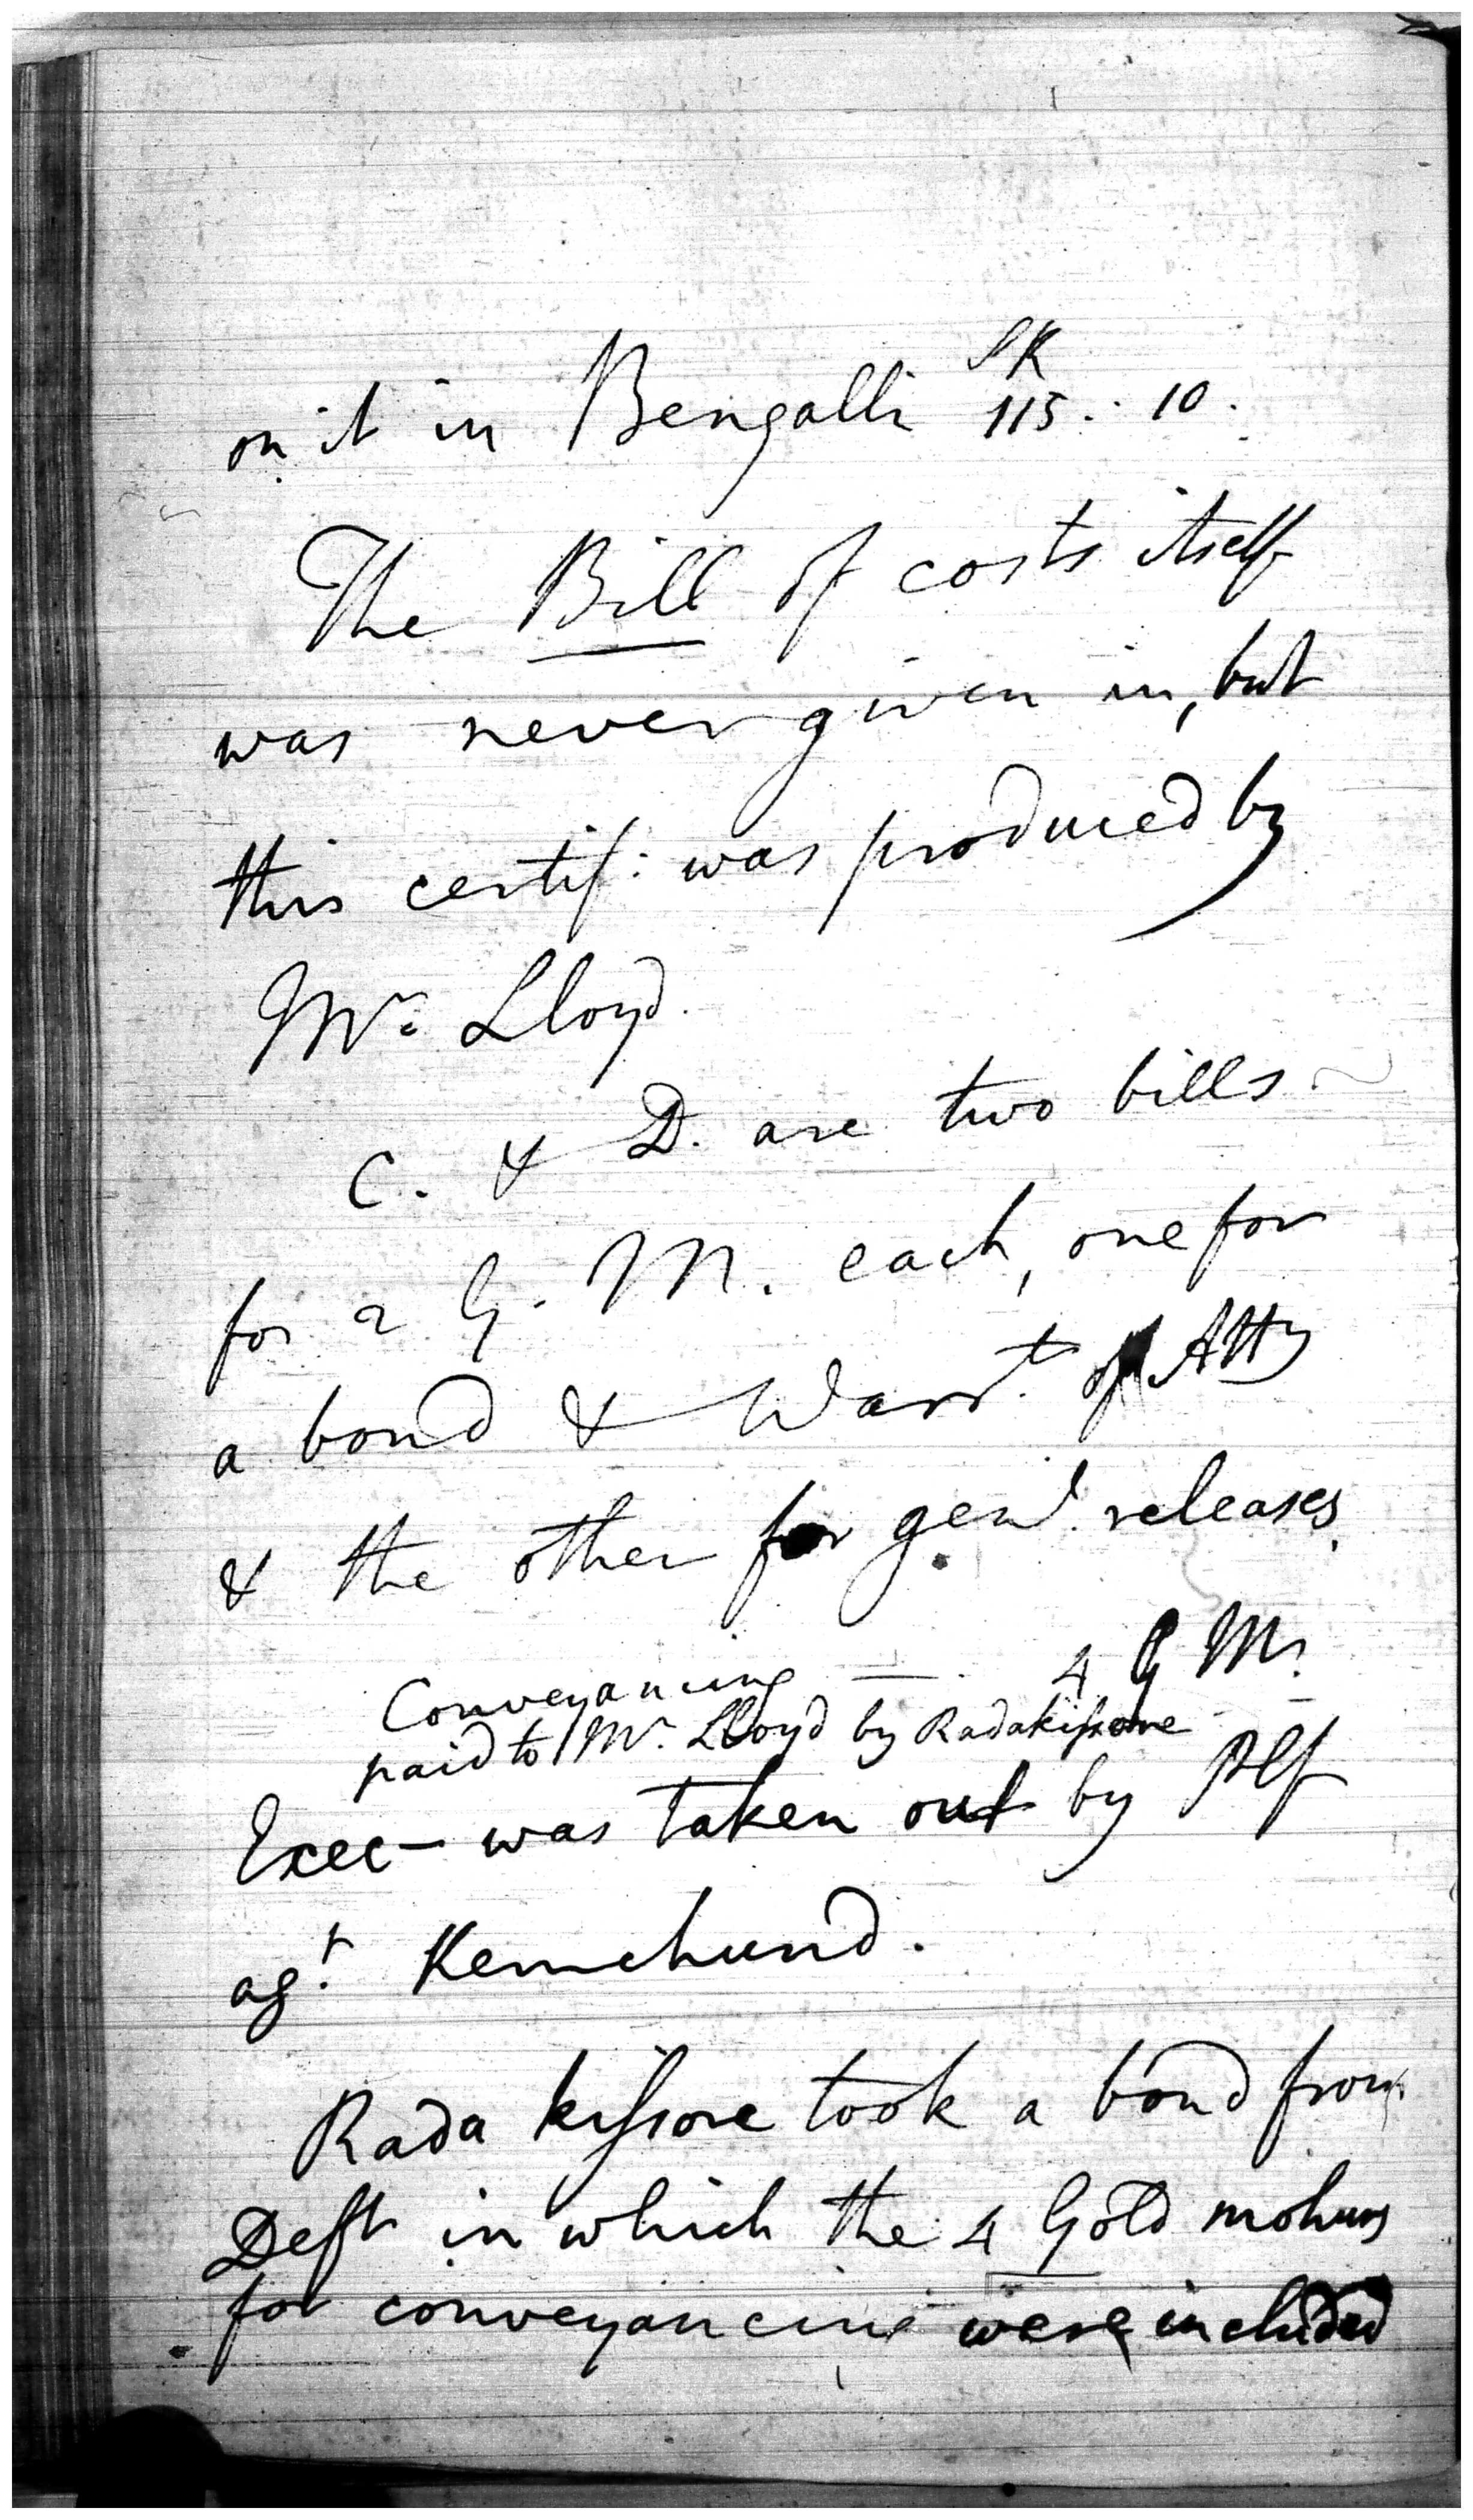 on it in Bengalli SR 115 : 10.
The Bill of costs itself
was never given in, but
this certif: was produced by
Mr. Lloyd.
C. & D. are two bills
for 2 G. M. each, one for
a bond & Warrt. of Atty
& the other for genl. releases.
Conveyancing — 4 G Ms.
paid to Mr. Lloyd by Radakissore
Exec— was taken out by Plf
agt. Kemchund.
Rada kissore took a bond from
Deft in which the 4 Gold mohurs
for conveyancing were included